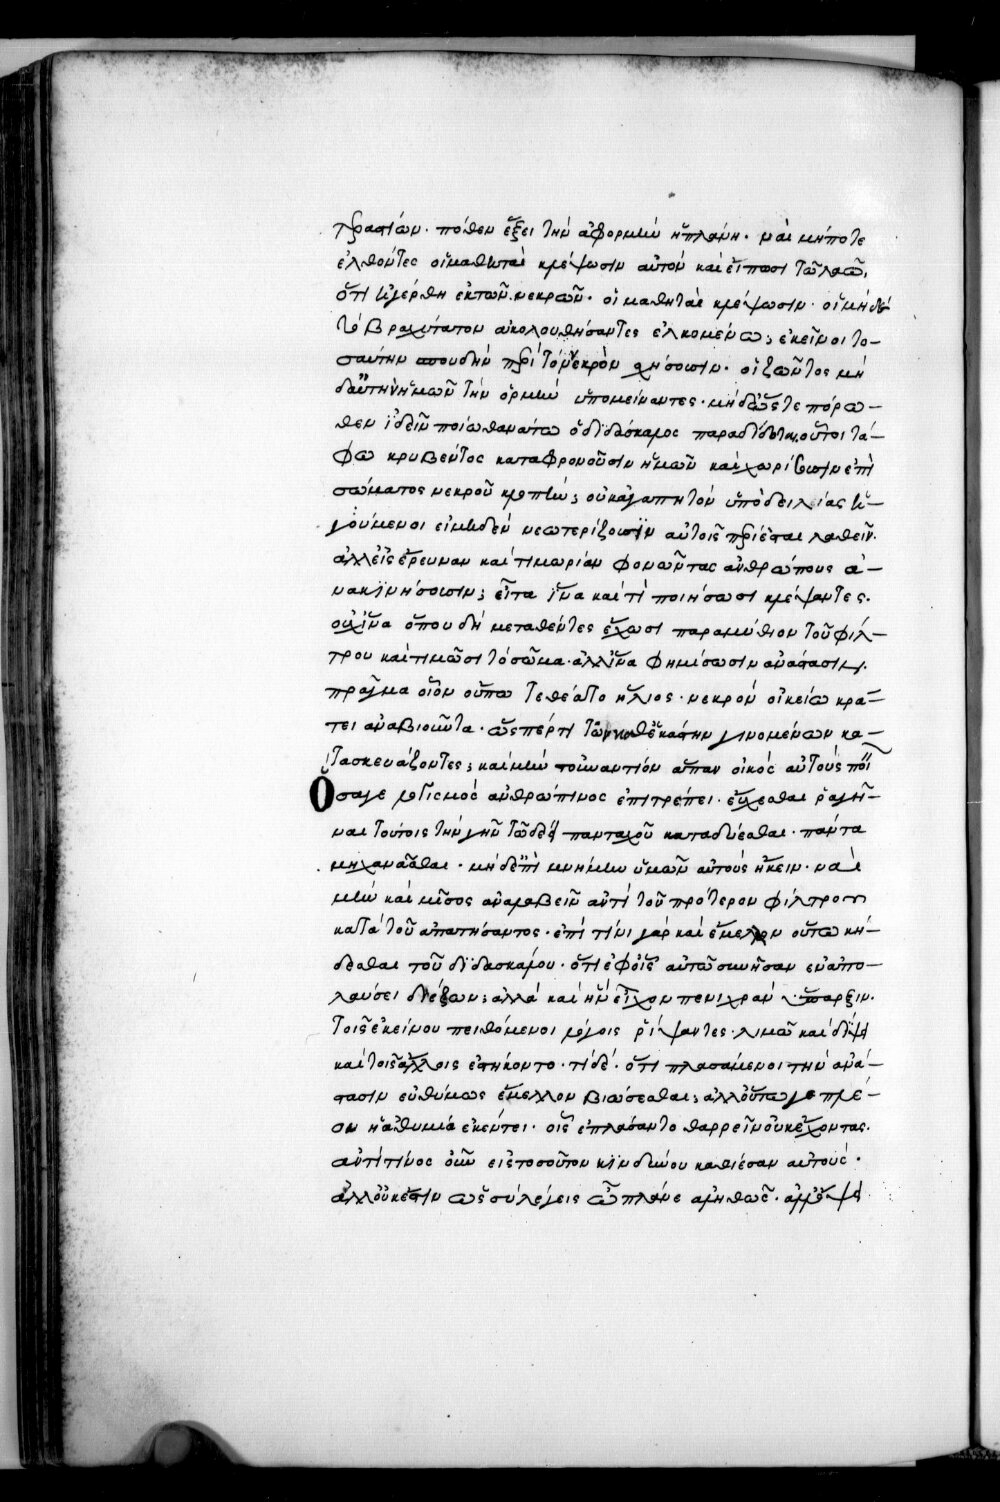 πρασιῶν· πόθεν ἕξει τὴν ἀφορμὴν ἡ πλάνη· ναὶ μήποτε
ἐλθόντες οἱ μαθηταὶ κλέψωσιν αὐτὸν καὶ εἴπωσι τῷ λαῷ,
ὅτι ἠγέρθη ἐκ τῶν νεκρῶν· οἱ μαθηταὶ κλέψωσιν· οἱ μηδὲ
τὸ βραχύτατον ἀκολουθήσαντες ἑλκομένω; ἐκεῖνοι το-
σαύτην σπουδὴν περὶ τὸν νεκρὸν χήσουσιν· οἱ ζῶντος μὴ
δ' αὐτὴν ἡμῶν τὴν ὁρμὴν ὑπομείναντες· μηδ' ὥστε πόρω-
θεν ἰδεῖν ποίω θανάτω ὁ διδάσκαλος παραδίδοται, οὗτοι τά-
φω κρυβέντος καταφρονοῦσιν ἡμῶν καὶ χωρίσουσιν ἐπὶ
σώματος νεκροῦ κλοπὴν; οὐκ ἀγαπητὸν ὑπὸ δειλίας ἡ-
γούμενοι εἰ μηδὲν νεωτερίζουσιν αὐτοῖς περιέσται λαθεῖν·
ἀλλ' εἰς ἔρευναν καὶ τιμωρίαν φονῶντας ἀνθρώπους ἀ-
νακινήσουσιν; εἶτα ἵνα καὶ τί ποιήσωσι κλέψαντες·
οὐχ ἵνα ὅπου δὴ μεταθέντες ἔχωσι παραμύθιον τοῦ φίλ-
τρου καὶ τιμῶσι τὸ σῶμα· ἀλλ' ἵνα φημίσωσιν ἀνάστασιν,
πρᾶγμα οἷον οὔπω τεθέατο ἥλιος· νεκρὸν οἰκείω κρά-
τει ἀναβιοῦντα· ὥσπερ τι τῶν καθ' ἑκάστην γινομένων κα-
τασκευάζοντες; καὶ μὴν τοὐναντίον ἅπαν εἰκὸς αὐτοὺς ποι
Ὅσα γε λογισμὸς ἀνθρώπινος ἐπιτρέπει· εὔχεσθαι ῥαγῆ-
ναι τούτοις τὴν γῆν τῷ δέει πανταχοῦ καταδύεσθαι· πάντα
μηχανᾶσθαι· μηδ' ἐπὶ μνήμην ὑμῶν αὐτοὺς ἥκειν· ναὶ
μὴν καὶ μῖσος ἀναλαβεῖν ἀντὶ τοῦ πρότερον φίλτρου
κατὰ τοῦ ἀπατήσαντος· ἐπὶ τίνι γὰρ καὶ ἔμελλον οὕτω κή-
δεσθαι τοῦ διδασκάλου· ὅτι ἐφ' οἷς αὐτῷ συνῆσαν ἐν ἀπο-
λαύσει διέζων; ἀλλὰ καὶ ἣν εἶχον πενιχρὰν ὕπαρξιν·
τοῖς ἐκείνου πειθόμενοι λόγοις ῥίψαντες· λιμῷ καὶ δίψει
καὶ τοῖς ἄλλοις ἐτήκοντο· τί δέ· ὅτι πλασάμενοι τὴν ἀνά-
στασιν εὐθύμως ἔμελλον βιώσεσθαι; ἀλλ' οὕτω γε πλέ-
ον ἡ ἀθυμία ἐκεντει· οἷς ἐπλάσαντο θαρρεῖν οὐκ ἔχοντας·
ἀντὶ τίνος οὖν εἰς τοσοῦτον κινδύνου καθίεσαν αὐτούς·
ἀλλ' οὐκ ἔστιν ὡς σὺ λέγεις ὦ πλάνε ἀληθῶς·